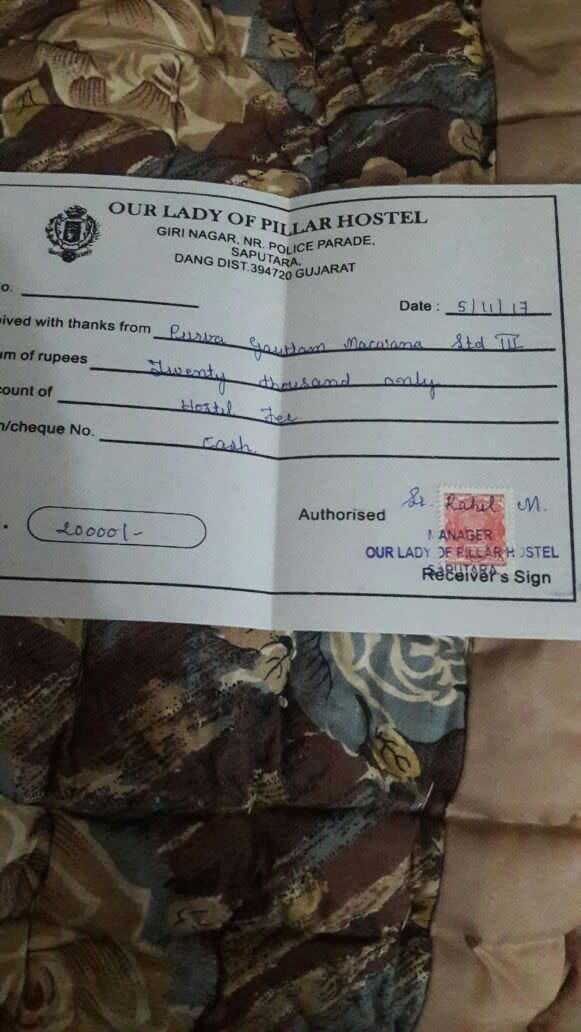 OUR LADY OF PILLAR HOSTEL
GIRI NAGAR, NR. POLICE PARADE,
SAPUTARA,
DANG DIST.394720 GUJARAT
o.
Date : 5/11/17
ived with thanks from Purva Gauttam Macwana Std III
um of rupees Twenty thousand only
count of Hostil Fee
h/cheque No. Cash.
. 20000/-
Authorised Sr. Rahel M.
MANAGER
OUR LADY OF PILLAR HOSTEL
SAPUTARA
Receiver's Sign